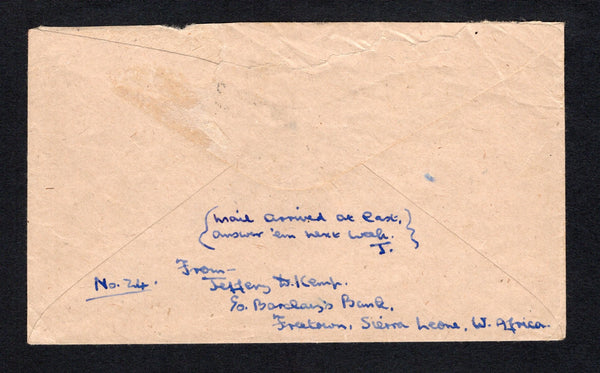 {Mail arrived at last,}
{answer 'em next week.}
J.
No. 24.
From—
Jeffery D. Kemp.
C/o. Barclay's Bank,
Freetown, Sierra Leone, W. Africa.